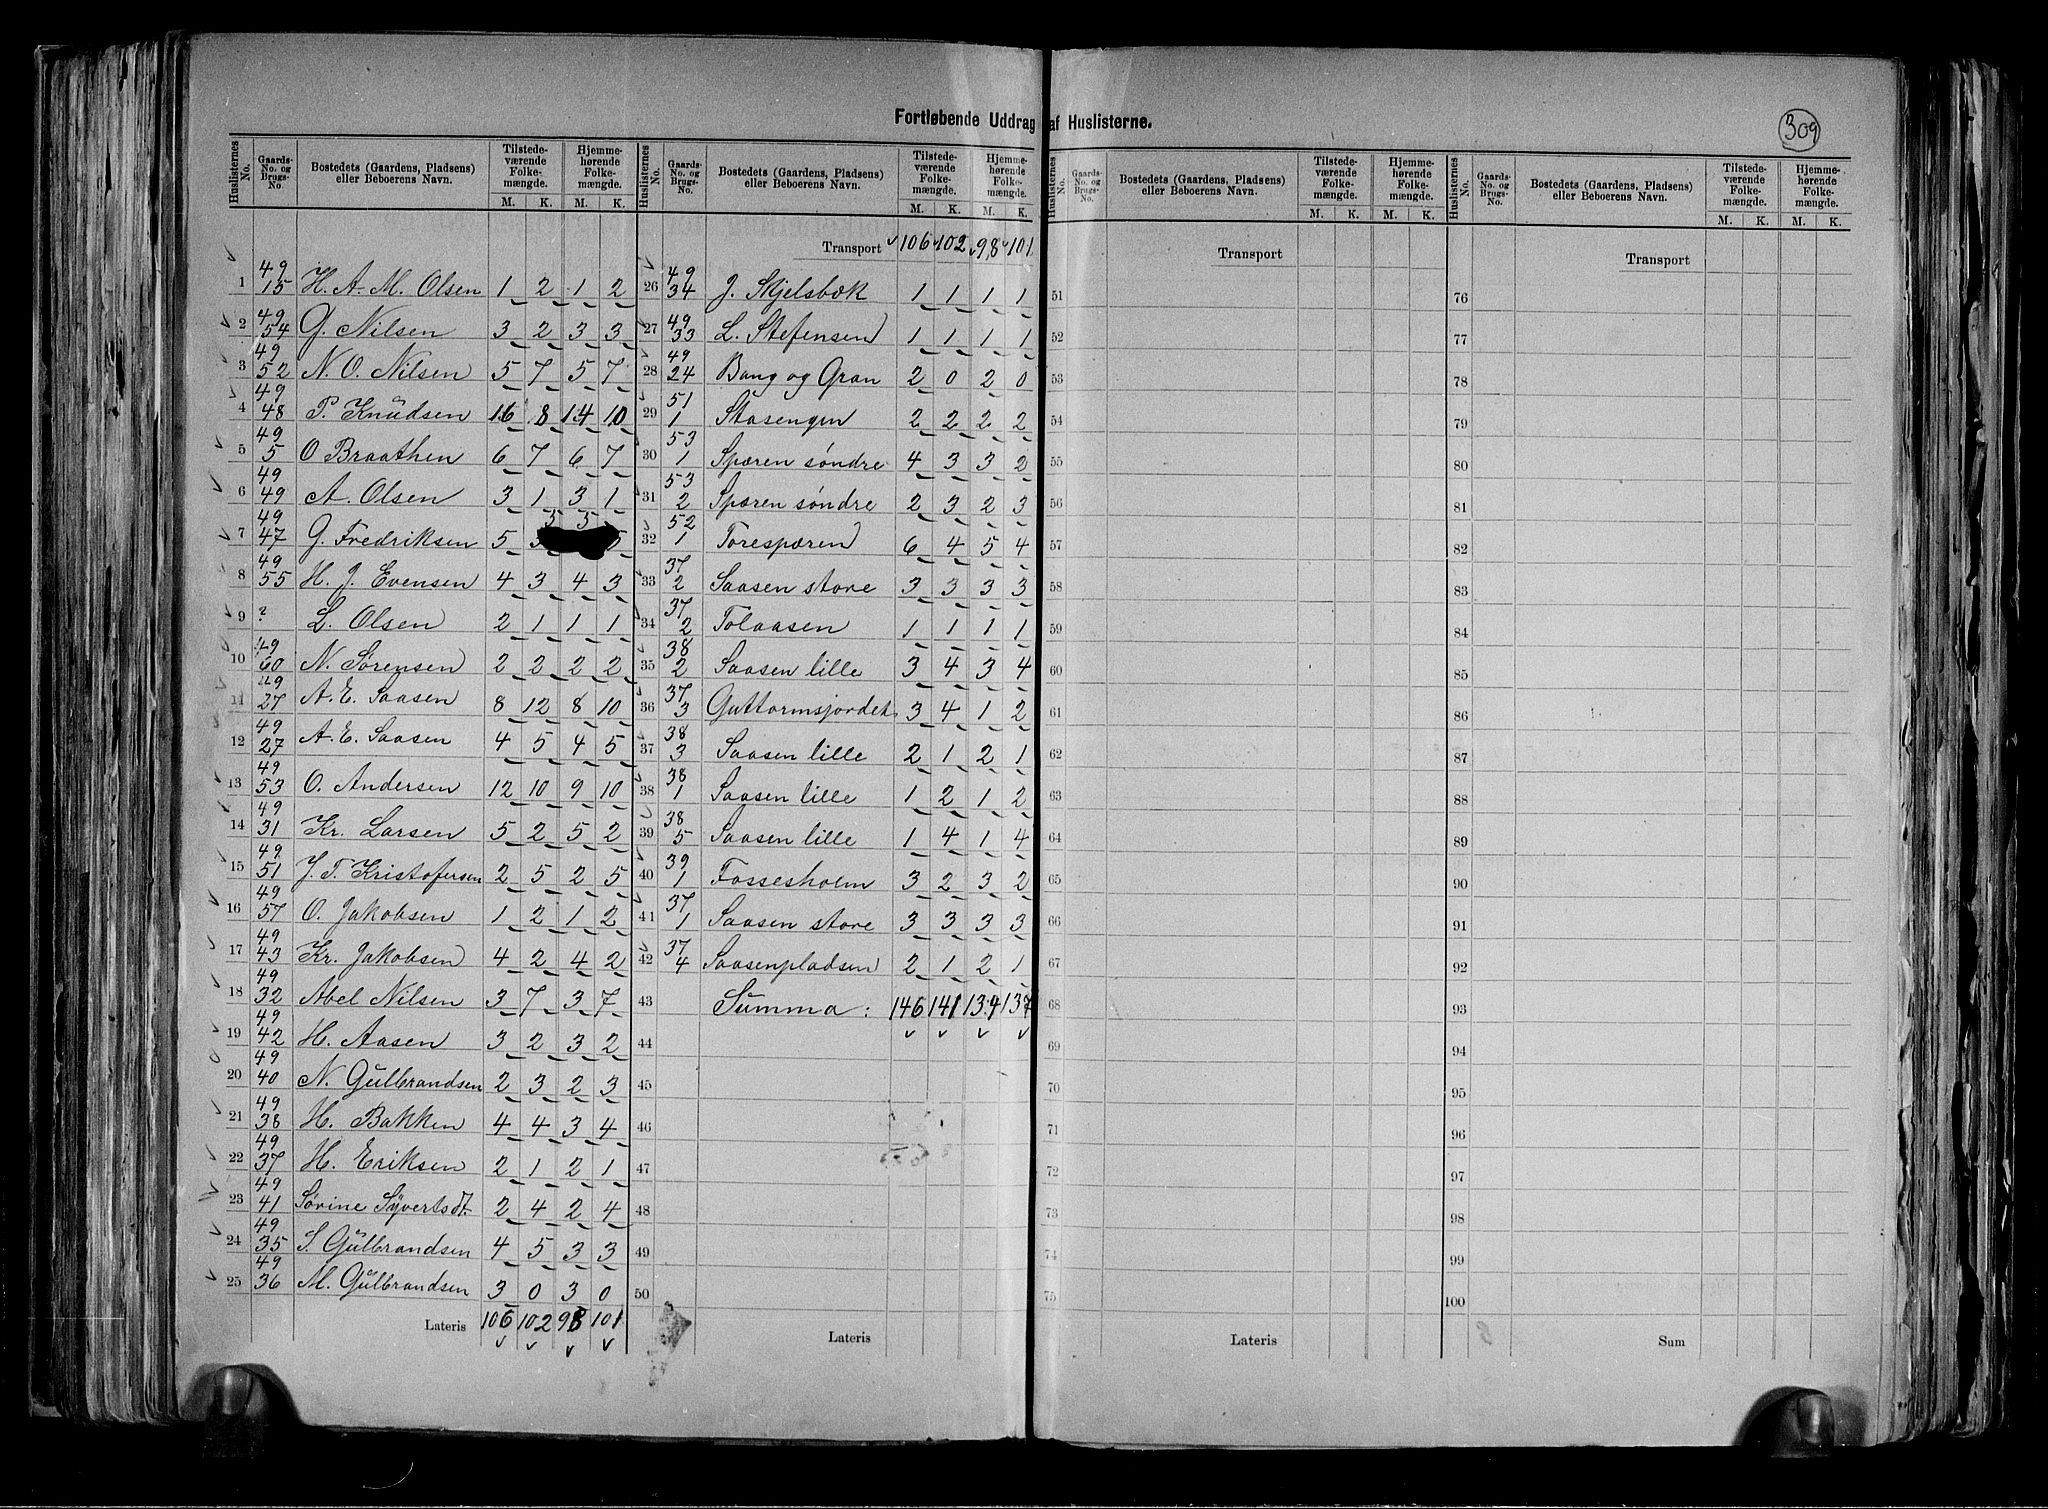 Fortløbende Uddrag af Huslisterne.
309
Huslisternes No. | Gaards-No. og Brugs-No. | Bostedets (Gaardens, Pladsens) eller Beboerens Navn. | Tilstedeværende Folkemængde. M. K. | Hjemmehørende Folkemængde. M. K.
1 | 49 15 | H. A. M. Olsen | 1 | 2 | 1 | 2
2 | 49 54 | G. Nilsen | 3 | 2 | 3 | 3
3 | 49 52 | N. O. Nilsen | 5 | 7 | 5 | 7
4 | 49 48 | P. Knudsen | 16 | 8 | 14 | 10
5 | 49 5 | O Braathen | 6 | 7 | 6 | 7
6 | 49 49 | A. Olsen | 3 | 1 | 3 | 1
7 | 49 47 | G. Fredriksen | 5 | 5 | 5 | 5
8 | 49 55 | H. J. Evensen | 4 | 3 | 4 | 3
9 | ? | L. Olsen | 2 | 1 | 1 | 1
10 | 49 60 | N. Sørensen | 2 | 2 | 2 | 2
11 | 49 27 | A. E. Saasen | 8 | 12 | 8 | 10
12 | 49 27 | A. E. Saasen | 4 | 5 | 4 | 5
13 | 49 53 | O. Andersen | 12 | 10 | 9 | 10
14 | 49 31 | Kr. Larsen | 5 | 2 | 5 | 2
15 | 49 51 | J. T. Kristofersen | 2 | 5 | 2 | 5
16 | 49 57 | O. Jakobsen | 1 | 2 | 1 | 2
17 | 49 43 | Kr. Jakobsen | 4 | 2 | 4 | 2
18 | 49 32 | Abel Nilsen | 3 | 7 | 3 | 7
19 | 49 42 | H. Aasen | 3 | 2 | 3 | 2
20 | 49 40 | N. Gulbrandsen | 2 | 3 | 2 | 3
21 | 49 38 | H. Bakken | 4 | 4 | 3 | 4
22 | 49 37 | H. Eriksen | 2 | 1 | 2 | 1
23 | 49 41 | Sørine Syvertsdt. | 2 | 4 | 2 | 4
24 | 49 35 | S. Gulbrandsen | 4 | 5 | 3 | 3
25 | 49 36 | M. Gulbrandsen | 3 | 0 | 3 | 0
Lateris | 106 | 102 | 98 | 101
Huslisternes No. | Gaards-No. og Brugs-No. | Bostedets (Gaardens, Pladsens) eller Beboerens Navn. | Tilstedeværende Folkemængde. M. K. | Hjemmehørende Folkemængde. M. K.
Transport | 106 | 102 | 98 | 101
26 | 49 34 | J. Skjelsbæk | 1 | 1 | 1 | 1
27 | 49 33 | L. Stefensen | 1 | 1 | 1 | 1
28 | 49 24 | Bang og Gran | 2 | 0 | 2 | 0
29 | 51 1 | Stasengen | 2 | 2 | 2 | 2
30 | 53 1 | Spæren søndre | 4 | 3 | 3 | 2
31 | 53 2 | Spæren søndre | 2 | 3 | 2 | 3
32 | 52 1 | Torespæren | 6 | 4 | 5 | 4
33 | 37 2 | Saasen store | 3 | 3 | 3 | 3
34 | 37 2 | Tolaasen | 1 | 1 | 1 | 1
35 | 38 2 | Saasen lille | 3 | 4 | 3 | 4
36 | 37 3 | Guttormsjordet | 3 | 4 | 1 | 2
37 | 38 3 | Saasen lille | 2 | 1 | 2 | 1
38 | 38 1 | Saasen lille | 1 | 2 | 1 | 2
39 | 38 5 | Saasen lille | 1 | 4 | 1 | 4
40 | 39 1 | Fossesholm | 3 | 2 | 3 | 2
41 | 37 1 | Saasen store | 3 | 3 | 3 | 3
42 | 37 4 | Saasenpladsen | 2 | 1 | 2 | 1
43 | Summa: | 146 | 141 | 134 | 137
44
45
46
47
48
49
50
Lateris
Huslisternes No. | Gaards-No. og Brugs-No. | Bostedets (Gaardens, Pladsens) eller Beboerens Navn. | Tilstedeværende Folkemængde. M. K. | Hjemmehørende Folkemængde. M. K.
Transport
51
52
53
54
55
56
57
58
59
60
61
62
63
64
65
66
67
68
69
70
71
72
73
74
75
Lateris
Huslisternes No. | Gaards-No. og Brugs-No. | Bostedets (Gaardens, Pladsens) eller Beboerens Navn. | Tilstedeværende Folkemængde. M. K. | Hjemmehørende Folkemængde. M. K.
Transport
76
77
78
79
80
81
82
83
84
85
86
87
88
89
90
91
92
93
94
95
96
97
98
99
100
Sum